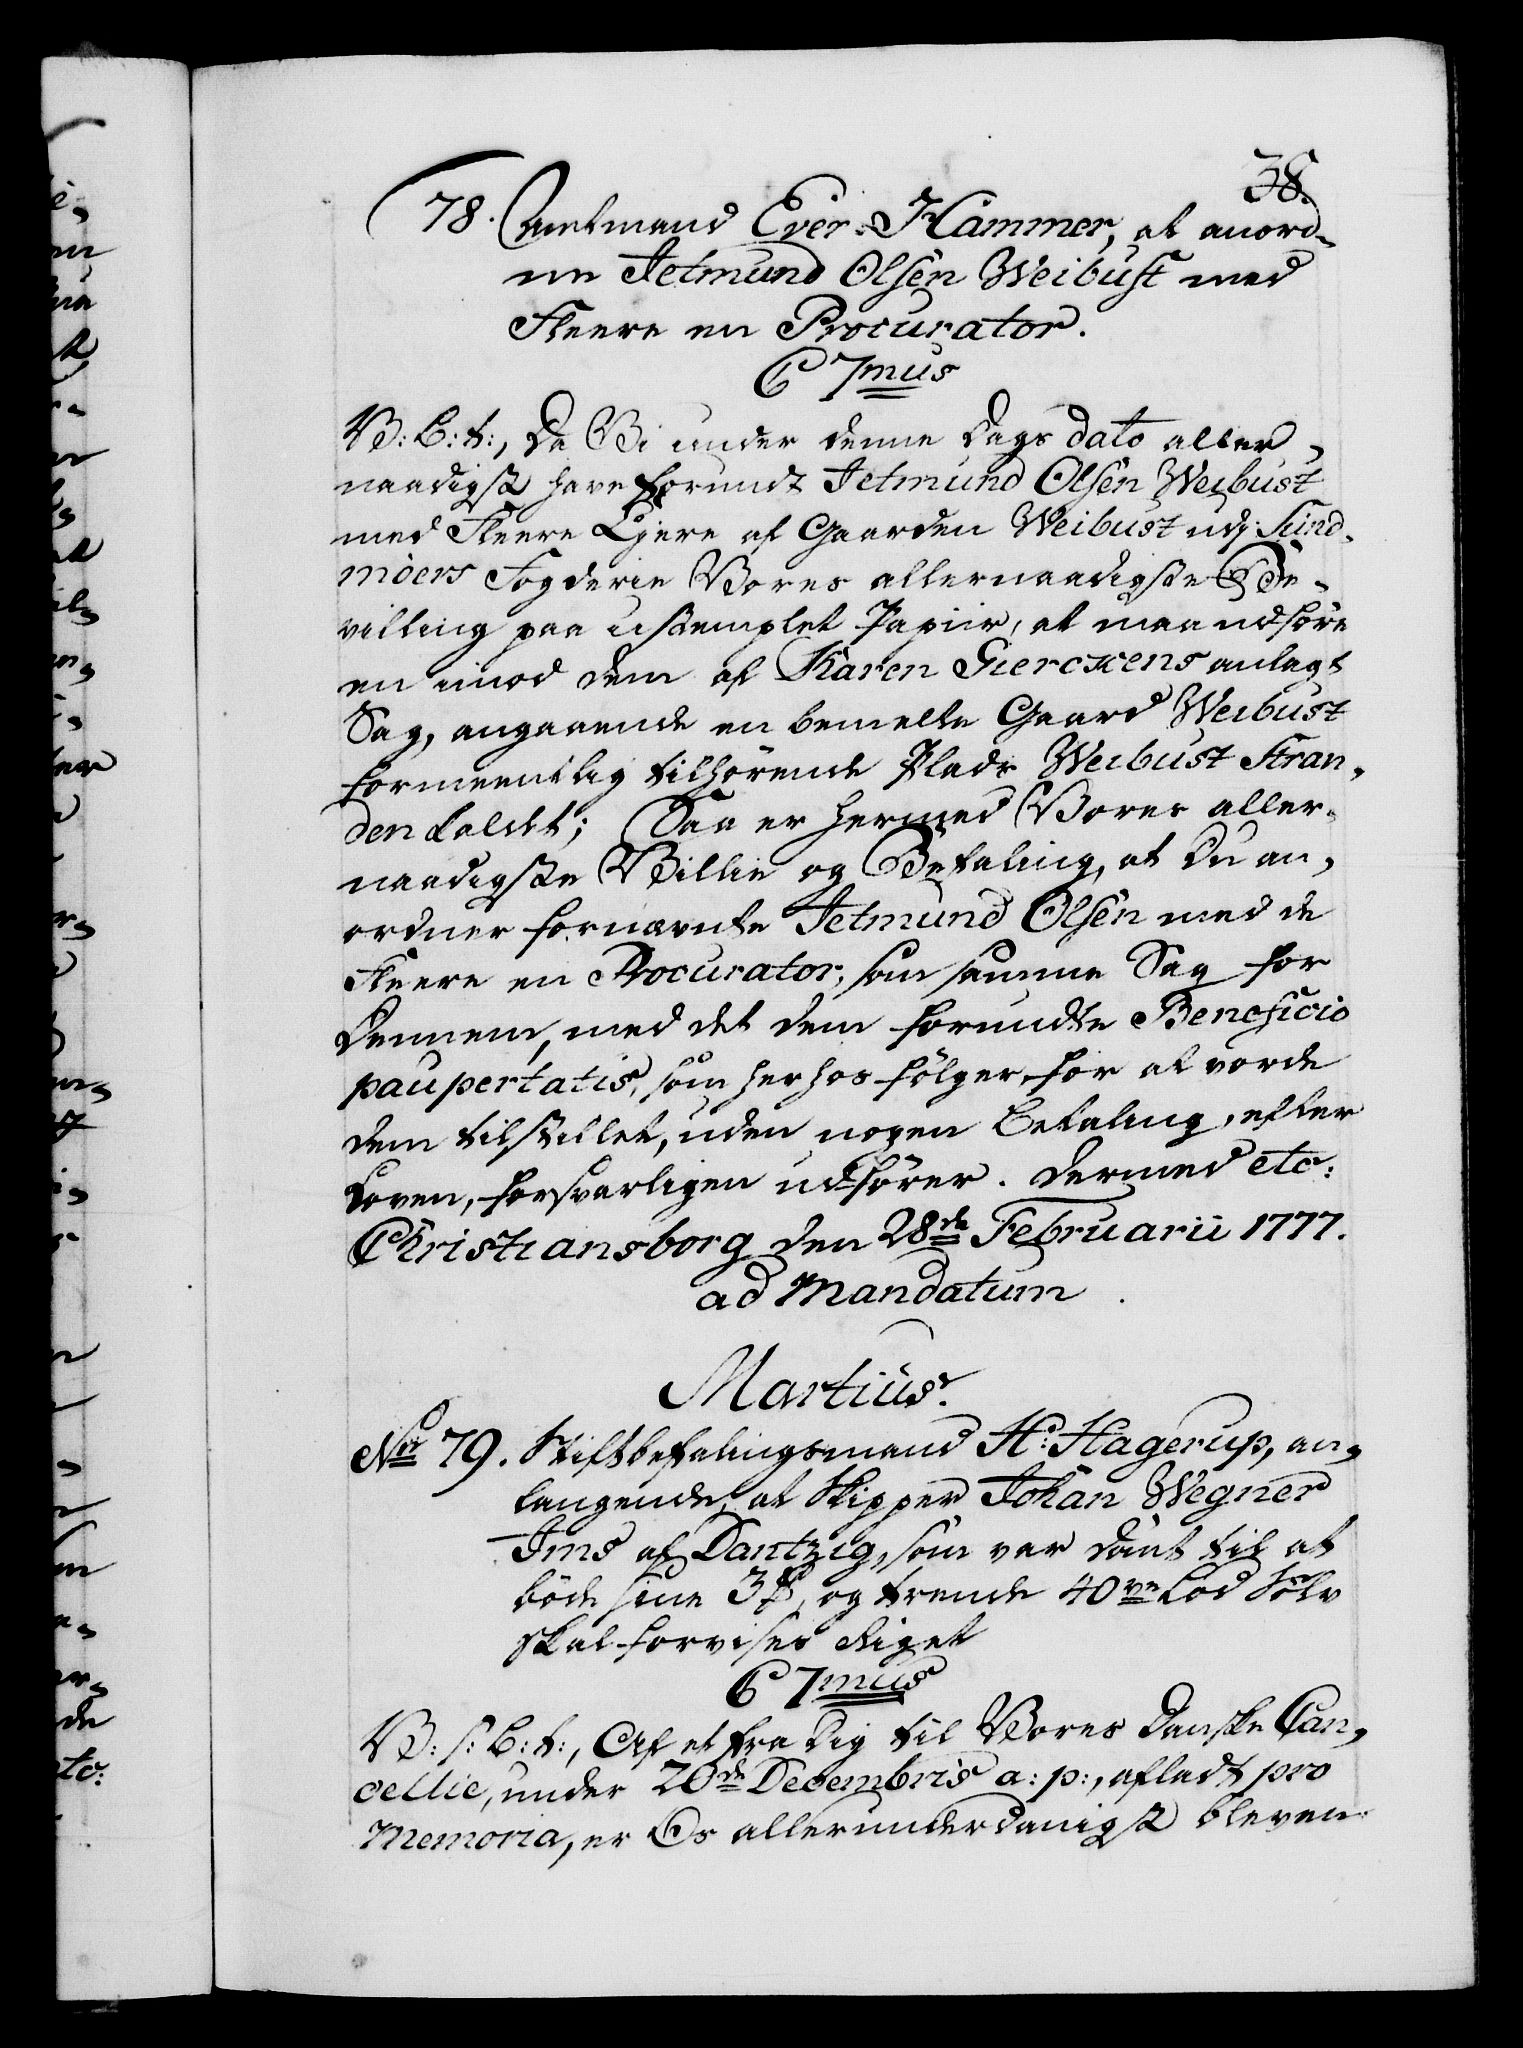 38.
78. Amtmand Ever Hammer, at anord-
ne Jetmund Olsen Weibust med
Fleere en Procurator.
C 7mus
V: B: t:, Da Vi under denne Dags dato aller-
naadigst have forundt Jetmund Olsen Weibust
med Fleere Ejere af Gaarden Weibust udj Sünd-
möers Fogderie Vores allernaadigste Be-
villing paa ustemplet Papiir, at maa udföre
en imod dem af Karen Siercxens anlagt
Sag, angaaende en bemelte Gaard Weibust
formeentlig tilhörende Plads Weibust Stran-
den kaldet; Saa er hermed Vores aller-
naadigste Villie og Befaling, at Du an-
ordner fornævnte Jetmund Olsen med de
Fleere en Procurator, som samme Sag for
Dennem, med det dem forundte Beneficio
paupertatis, som herhos fölger for at vorde
dem tilstillet, uden nogen Betaling, efter
Loven, forsvarligen udförer. Dermed etc:
Christiansborg den 28de Februarii 1777.
ad Mandatum
Martius.
No 79. Stiftbefalingsmand H: Hagerup, an-
langende, at Skipper Johan Wegner
Ims af Dantzig, som var dömt til at
böde sine 3 , og trende 40ve Lod Sölv
skal forvises Riget
C 7mus
V: s: B: t:, Af et fra Dig til Vores Danske Can-
cellie, under 20de Decembris a: p:, afladt pro
Memoria, er Os allerunderdanigst bleven